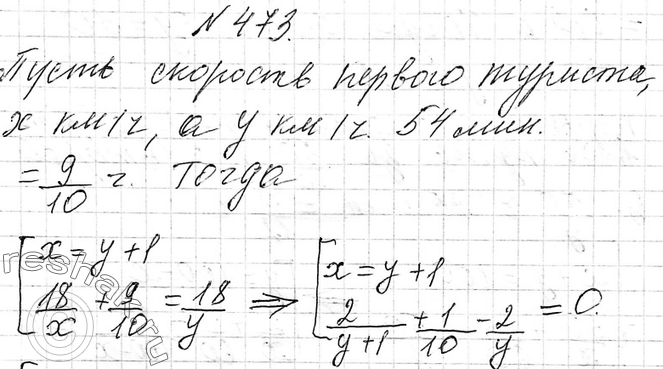 N 473.
Пусть скорость первого туриста,
x км/ч, а y км/ч. 54 мин.
= 9/10 ч. Тогда
[x = y + 1 [x = y + 1
[18/x + 9/10 = 18/y ⇒ [2/(y+1) + 1/10 - 2/y = 0.
reshak.ru